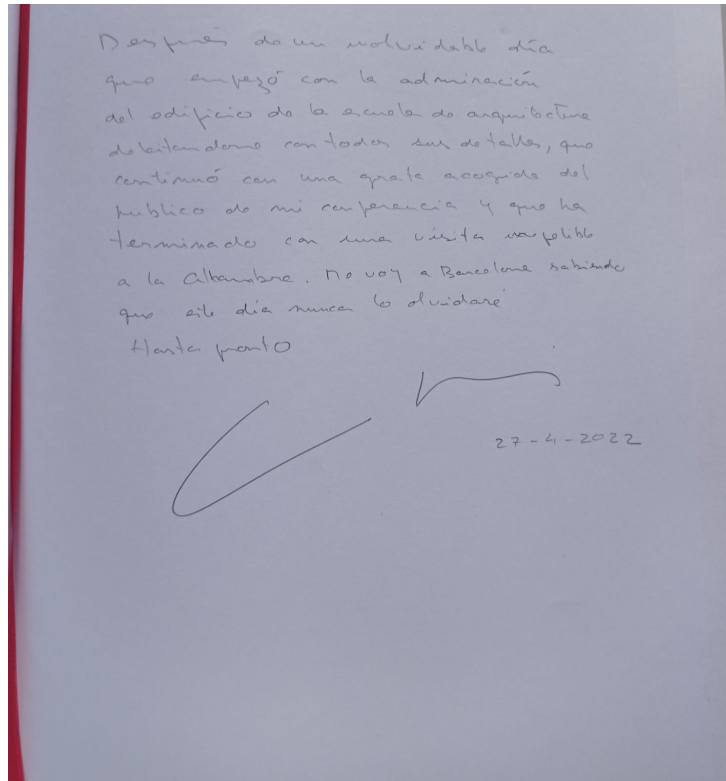 Después de un inolvidable día
que empezó con la admiración
del edificio de la escuela de arquitectura
deleitandome con todos sus detalles, que
continuó con una grata acogida del
publico de mi conferencia y que ha
terminado con una visita
a la Alhambra. Me voy a Barcelona sabiendo
que este día nunca lo olvidaré
Hasta pronto
27-4-2022